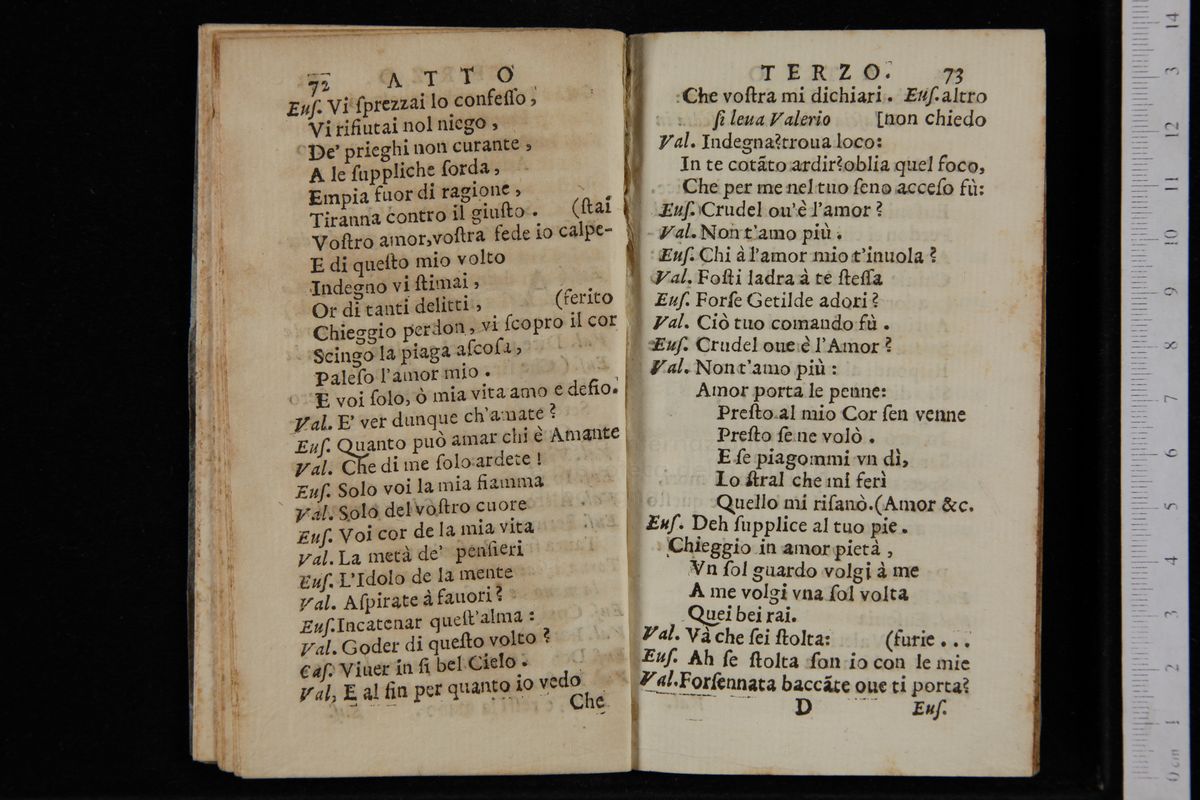 72 ATTO
Euſ. Vi ſprezzai lo confeſſo,
Vi rifiutai nol niego,
De' prieghi non curante,
A le ſuppliche ſorda,
Empia fuor di ragione,
Tiranna contro il giuſto. (ſtai
Voſtro amor, voſtra fede io calpe-
E di queſto mio volto
Indegno vi ſtimai,
Or di tanti delitti, (ferito
Chieggio perdon, vi ſcopro il cor
Scingo la piaga aſcoſa,
Paleſo l'amor mio.
E voi ſolo, ò mia vita amo e deſio.
Val. E' ver dunque ch'amate?
Euſ. Quanto può amar chi è Amante
Val. Che di me ſolo ardete!
Euſ. Solo voi la mia fiamma
Val. Solo del voſtro cuore
Euſ. Voi cor de la mia vita
Val. La metà de' penſieri
Euſ. L'Idolo de la mente
Val. Aſpirate à fauori?
Euſ. Incatenar queſt'alma:
Val. Goder di queſto volto?
Eaſ. Viuer in ſi bel Cielo.
Val, E al fin per quanto io vedo
Che
TERZO. 73
Che voſtra mi dichiari. Euſ. altro
ſi leua Valerio [non chiedo
Val. Indegna? troua loco:
In te cotãto ardir? oblia quel foco,
Che per me nel tuo ſeno acceſo fù:
Euſ. Crudel ou'è l'amor?
Val. Non t'amo più.
Euſ. Chi à l'amor mio t'inuola?
Val. Foſti ladra à te ſteſſa
Euſ. Forſe Getilde adori?
Val. Ciò tuo comando fù.
Euſ. Crudel oue è l'Amor?
Val. Non t'amo più:
Amor porta le penne:
Preſto al mio Cor ſen venne
Preſto ſe ne volò.
E ſe piagommi vn dì,
Lo ſtral che mi ferì
Quello mi riſanò. (Amor &c.
Euſ. Deh ſupplice al tuo pie.
Chieggio in amor pietà,
Vn ſol guardo volgi à me
A me volgi vna ſol volta
Quei bei rai.
Val. Và che ſei ſtolta: (furie...
Euſ. Ah ſe ſtolta ſon io con le mie
Val. Forſennata baccãte oue ti porta?
D Euſ.
0 cm 1 2 3 4 5 6 7 8 9 10 11 12 3 14